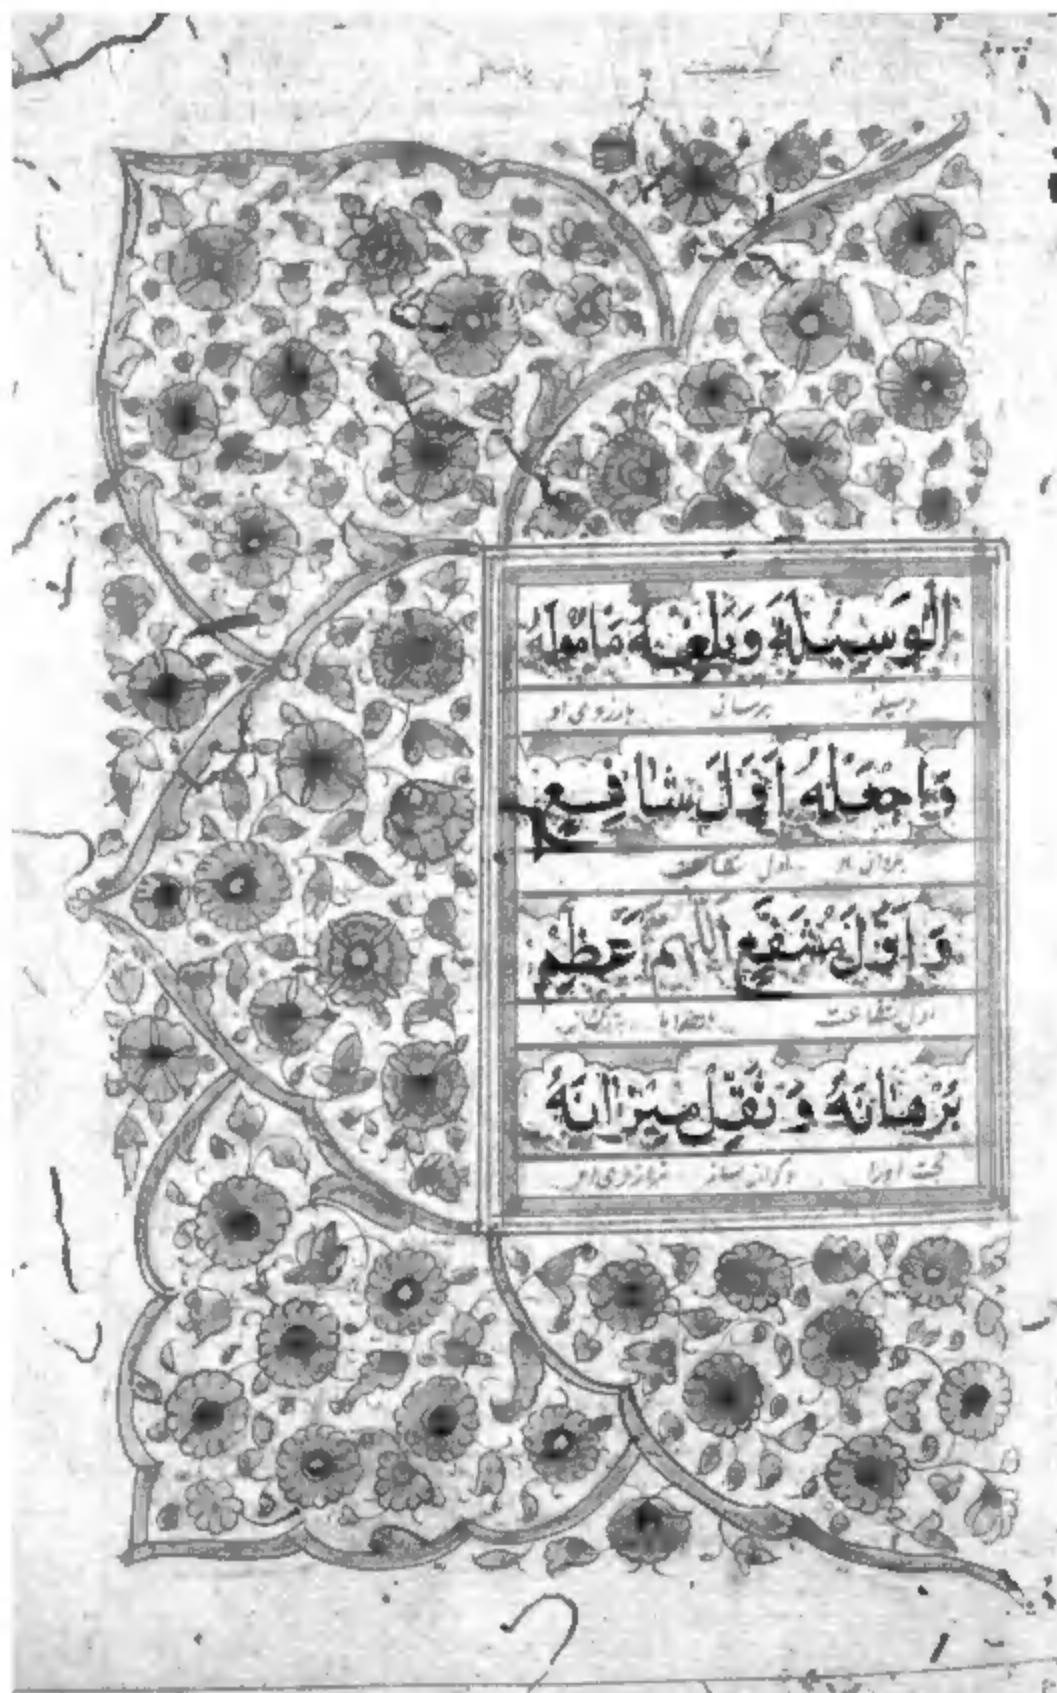 الْوَسِيلَةَ وَبَلِّغْهُ مَأْمُولَهُ
وسیله برسانی بارزوی او
وَاجْعَلْهُ اَوَّلَ شَافِعٍ
اول شفاعت
وَاَوَّلَ مُشَفَّعٍ اَللّٰهُمَّ عَظِّمْ
اول شفاعت
بُرْهَانَهُ وَثَقِّلْ مِيزَانَهُ
حجت اورا و گران ترازوی او